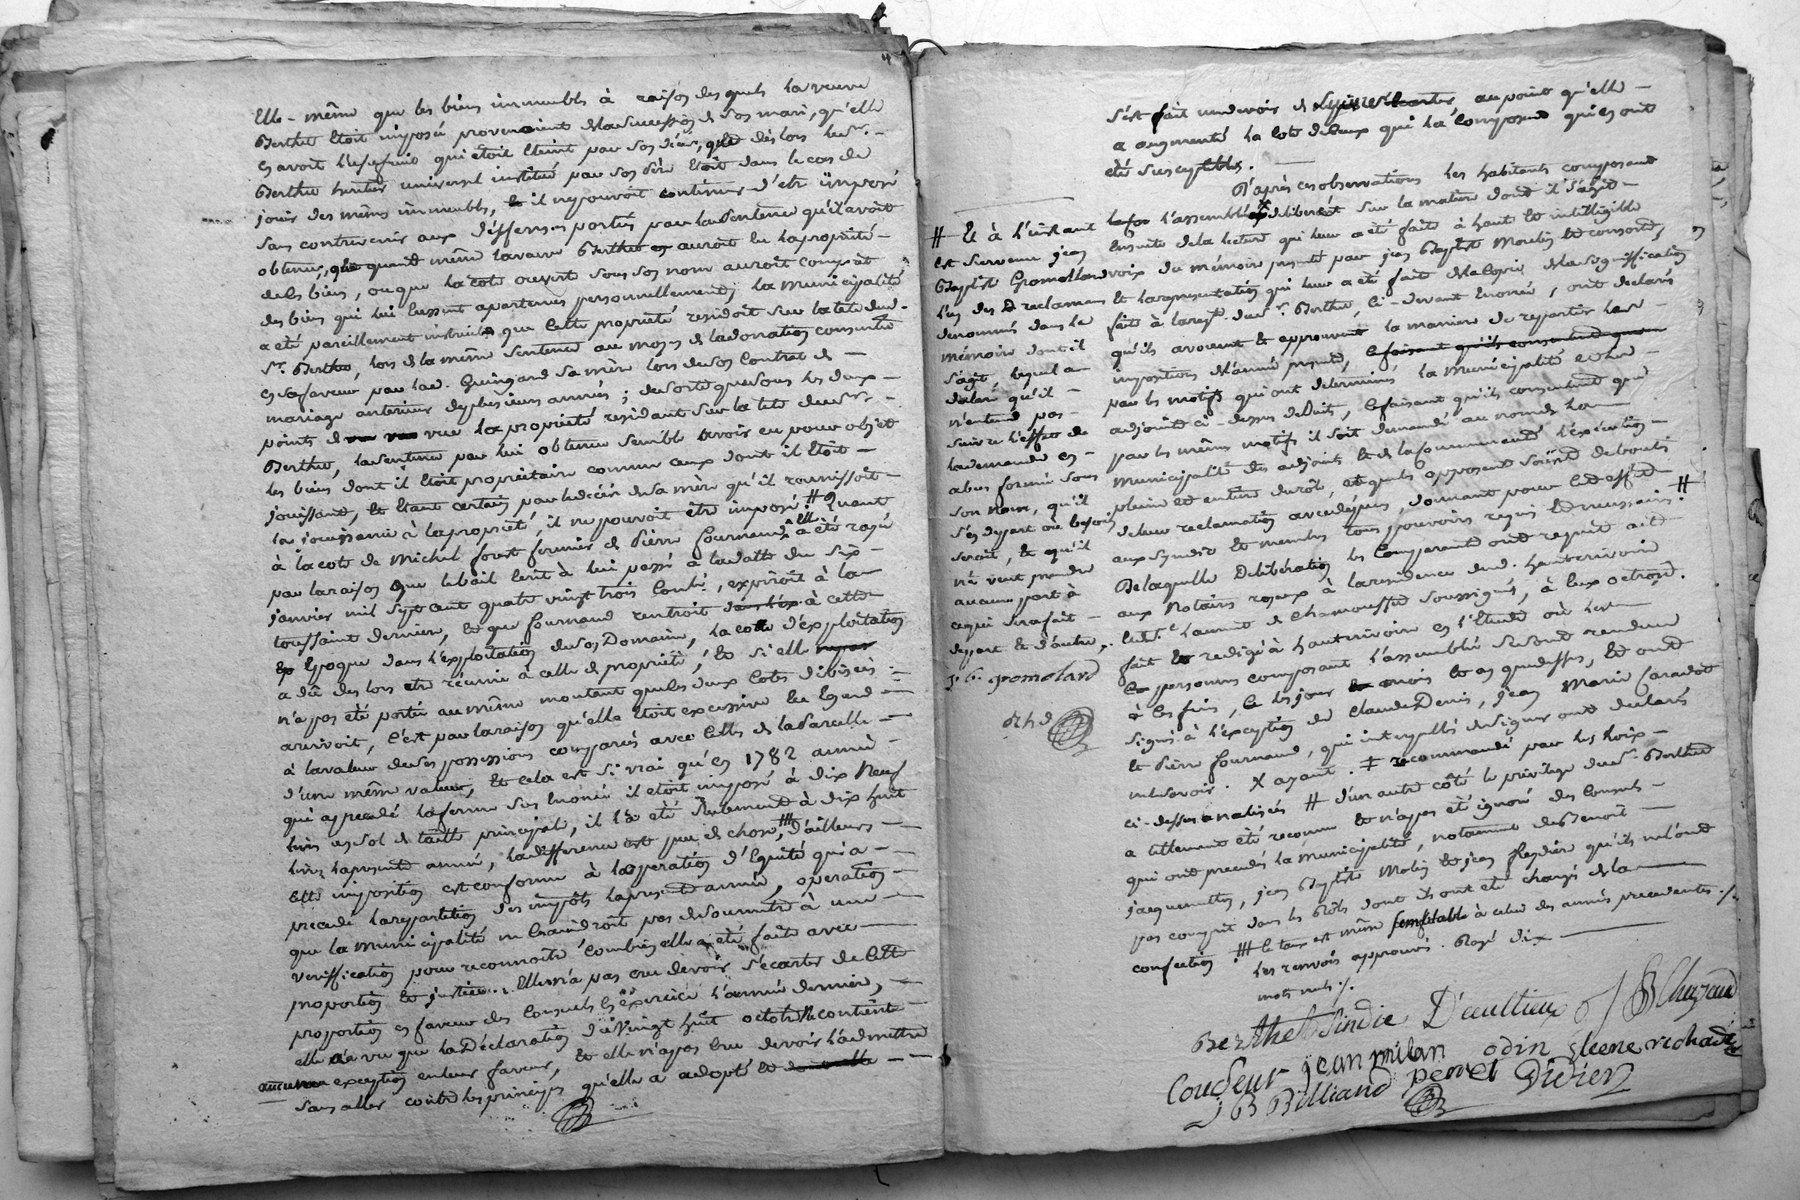 Elle-même que les biens immeubles à raison desquels la veuve
Berthet étoit imposée provenoient de la succession de son mari, qu'elle
en avoit l'usufruit qui étoit éteint par son décès, que dès lors le Sr.
Berthet héritier universel institué par son père étoit dans le cas de
jouir des mêmes immeubles, il ne pouvoit continuer d'etre imposé
sans contrevenir aux deffenses portées par la sentence qu'il avoit
obtenue, que quand même la veuve Berthet auroit eu la propriété
de les biens, ou que la cote ouverte sous son nom auroit compris
des biens qui lui eussent apartenus personnellement, la municipalité
a été pareillement instruite que cette propriété residoit sur la tete dud.
Sr. Berthet, lors de la même sentence au moyen de la donation consentie
en sa faveur par lad. Guingard sa mère lors de son contrat de
mariage anterieur de plusieurs années; de sorte que sous les deux
points de vue la propriété residant sur la tete dud. Sr.
Berthet, la sentence par lui obtenue semble avoir eu pour objet
les biens dont il étoit propriétaire comme ceux dont il étoit
jouissant, et étant certain par le décès de sa mère qu'il réunissoit
la jouissance à la propriété, il ne pouvoit être imposé. # Quant
à la cote de Michel fermier de Pierre fournand, elle a été rayée
par la raison que le bail à lui passé à la datte du six
janvier mil sept cent quatre vingt trois, expiroit à la
toussaint dernier, et que fournand rentroit à cette
Epoque dans l'exploitation de son Domaine, la cotte d'exploitation
a dû dès lors etre réunie à celle de propriété, et si elle
n'a pas été portée au même montant que les deux cotes divisées
arrivoit, c'est par la raison qu'elle étoit excessive eu Egard
à la valeur de ses possessions comparées avec celles de la Parcelle
d'une même valeur, et cela est si vrai qu'en 1782 année
qui a precedé la ferme sus énoncée il etoit imposé à dix neuf
livres en sol de taille principal, il l'a été seulement à dix huit
livres la presente année, la difference est peu de chose, # D'ailleurs
cette imposition est conforme à l'operation d'Equité qui a
precedé la repartition des impôts la presente année, operation
que la municipalité ne craindroit pas de soumettre à une
veriffication pour reconnoître combien elle a été faite avec
proportion et justice. Elle n'a pas cru devoir s'écarter de cette
proportion en faveur des Consuls en exercice l'année derniere,
elle a vu que la Déclaration du vingt huit octobre contient
aucune exception en leur faveur, et elle n'a pas cru devoir l'admettre
sans aller contre les principes qu'elle a adopté
s'est fait un devoir de au point qu'elle
a augmenté la cote de ceux qui l'a composent qui en ont
été susceptibles.
D'après ces observations les habitants composant
l'assemblée x deliberé sur la matiere dont il s'agit
Ensuite de la lecture qui leur a été faite à haute et intelligible
voix du mémoire presenté par jean Baptiste Moulin et consorts,
et la representation qui leur a été faite de la copie de la signiffication
faite à la reqte dud. Sr. Berthet, ci-devant énoncée, ont déclaré
qu'ils avouent et approuvent la maniere de repartir les
impositions de l'année presente,
par les motifs qui ont determinés la municipalité et les
adjoints ci-dessus deduits, ce faisant qu'ils consentent que
par les mêmes motifs il soit demandé au nom de la
municipalité des adjoints et de la communauté l'exécution
pleine et entiere du rôle, et que les opposants soient deboutés
de leur reclamation avec depens, donnant pour cet effet
aux syndic et membres tous pouvoirs requis et necessaires. #
De laquelle Deliberation les comparants ont requis acte
aux Notaires royaux à la residence dud. hauterivoire
et de St. Laurent de Chamousset soussignés, à eux octroyé.
fait et redigé à hauterivoire en l'Etude où les
personnes composant l'assemblée se sont rendues
à ces fins, ce les jour mois et an que dessus, et ont
signé à l'exception de Claude Denis, jean Marie Caradot
et Pierre fournand, qui interpellés de signer ont declarés
ne le savoir. X ayant. ‡ recommandé par les Roix
ci-dessus analisés # d'un autre côté le privilege dud. Sr. Berthet
a tellement été reconnu et n'a pas été ignoré des Consuls
qui ont precedés la municipalité, notamment de Benoit
jacquemetton, jean Baptiste Molin et jean fleydier qu'ils ne l'ont
pas compris dans les Rôles dont ils ont été chargés de la
confection !!!# le taux est même semblable à celui des années precedentes./.
Les renvois approuvés. Rayé dix
mots nuls./.
# Et à l'instant
est survenu jean
Baptiste Gromollard
l'un des reclamans
denommés dans le
mémoire dont il
s'agit, lequel a
déclaré qu'il
n'entend pas
suivre l'effet de
la demande en
abus formée sous
son nom, qu'il
s'en depart où besoin
seroit, et qu'il
n'i veut prendre
aucune part à
ce qui sera fait
de part et d'autre.
j. b. gromolard
Berthet Sindic D'eaultieux J B Chazaud
Coudeur jean milan odin Eleene richard
J B Billiand perret Didier